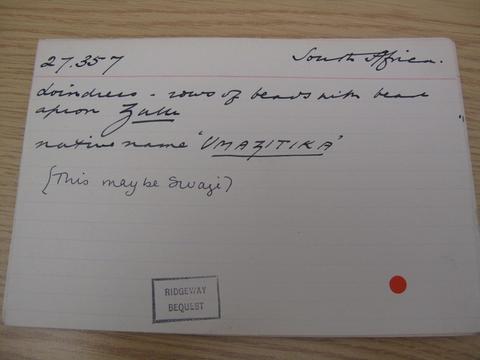 27.357 South Africa.
Loindress - rows of beads with bead
apron Zulu
native name 'UMAZITIKA'
(This may be Swazi)
RIDGEWAY
BEQUEST